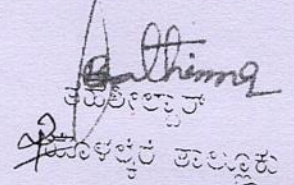 ತಹಶೀಲ್ದಾರ್
ಹೊಳಲ್ಕೆರೆ ತಾಲ್ಲೂಕು